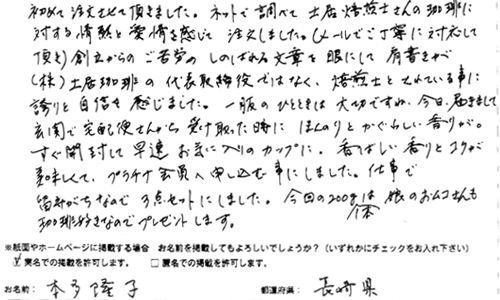 初めて注文させて頂きました。ネットで調べて土居焙煎士さんの珈琲に
対する情熱と愛情を感じて注文しました。(メールでご丁寧に対応して
頂き)創立からのご苦労のしのばれる文章を眼にして肩書きが
(株)土居珈琲の代表取締役ではなく、焙煎士とされている事に
誇りと自信を感じました。一服のひとときは大切ですね。今日、届きまして
玄関で宅配便さんから受け取った時にほんのりとかぐわしい香りが。
すぐ開封して早速お気に入りのカップに。香ばしい香りとコクが
美味しくて、プラチナ会員へ申し込む事にしました。仕事で
留守がちなので3点セットにしました。今回の200gは娘のおムコさんも
珈琲好きなのでプレゼントします。
※紙面やホームページに掲載する場合 お名前を掲載してもよろしいでしょうか?(いずれかにチェックをお入れ下さい)
☑実名での掲載を許可します。 □匿名での掲載を許可します。
お名前: 本多隆子 都道府県: 長崎県